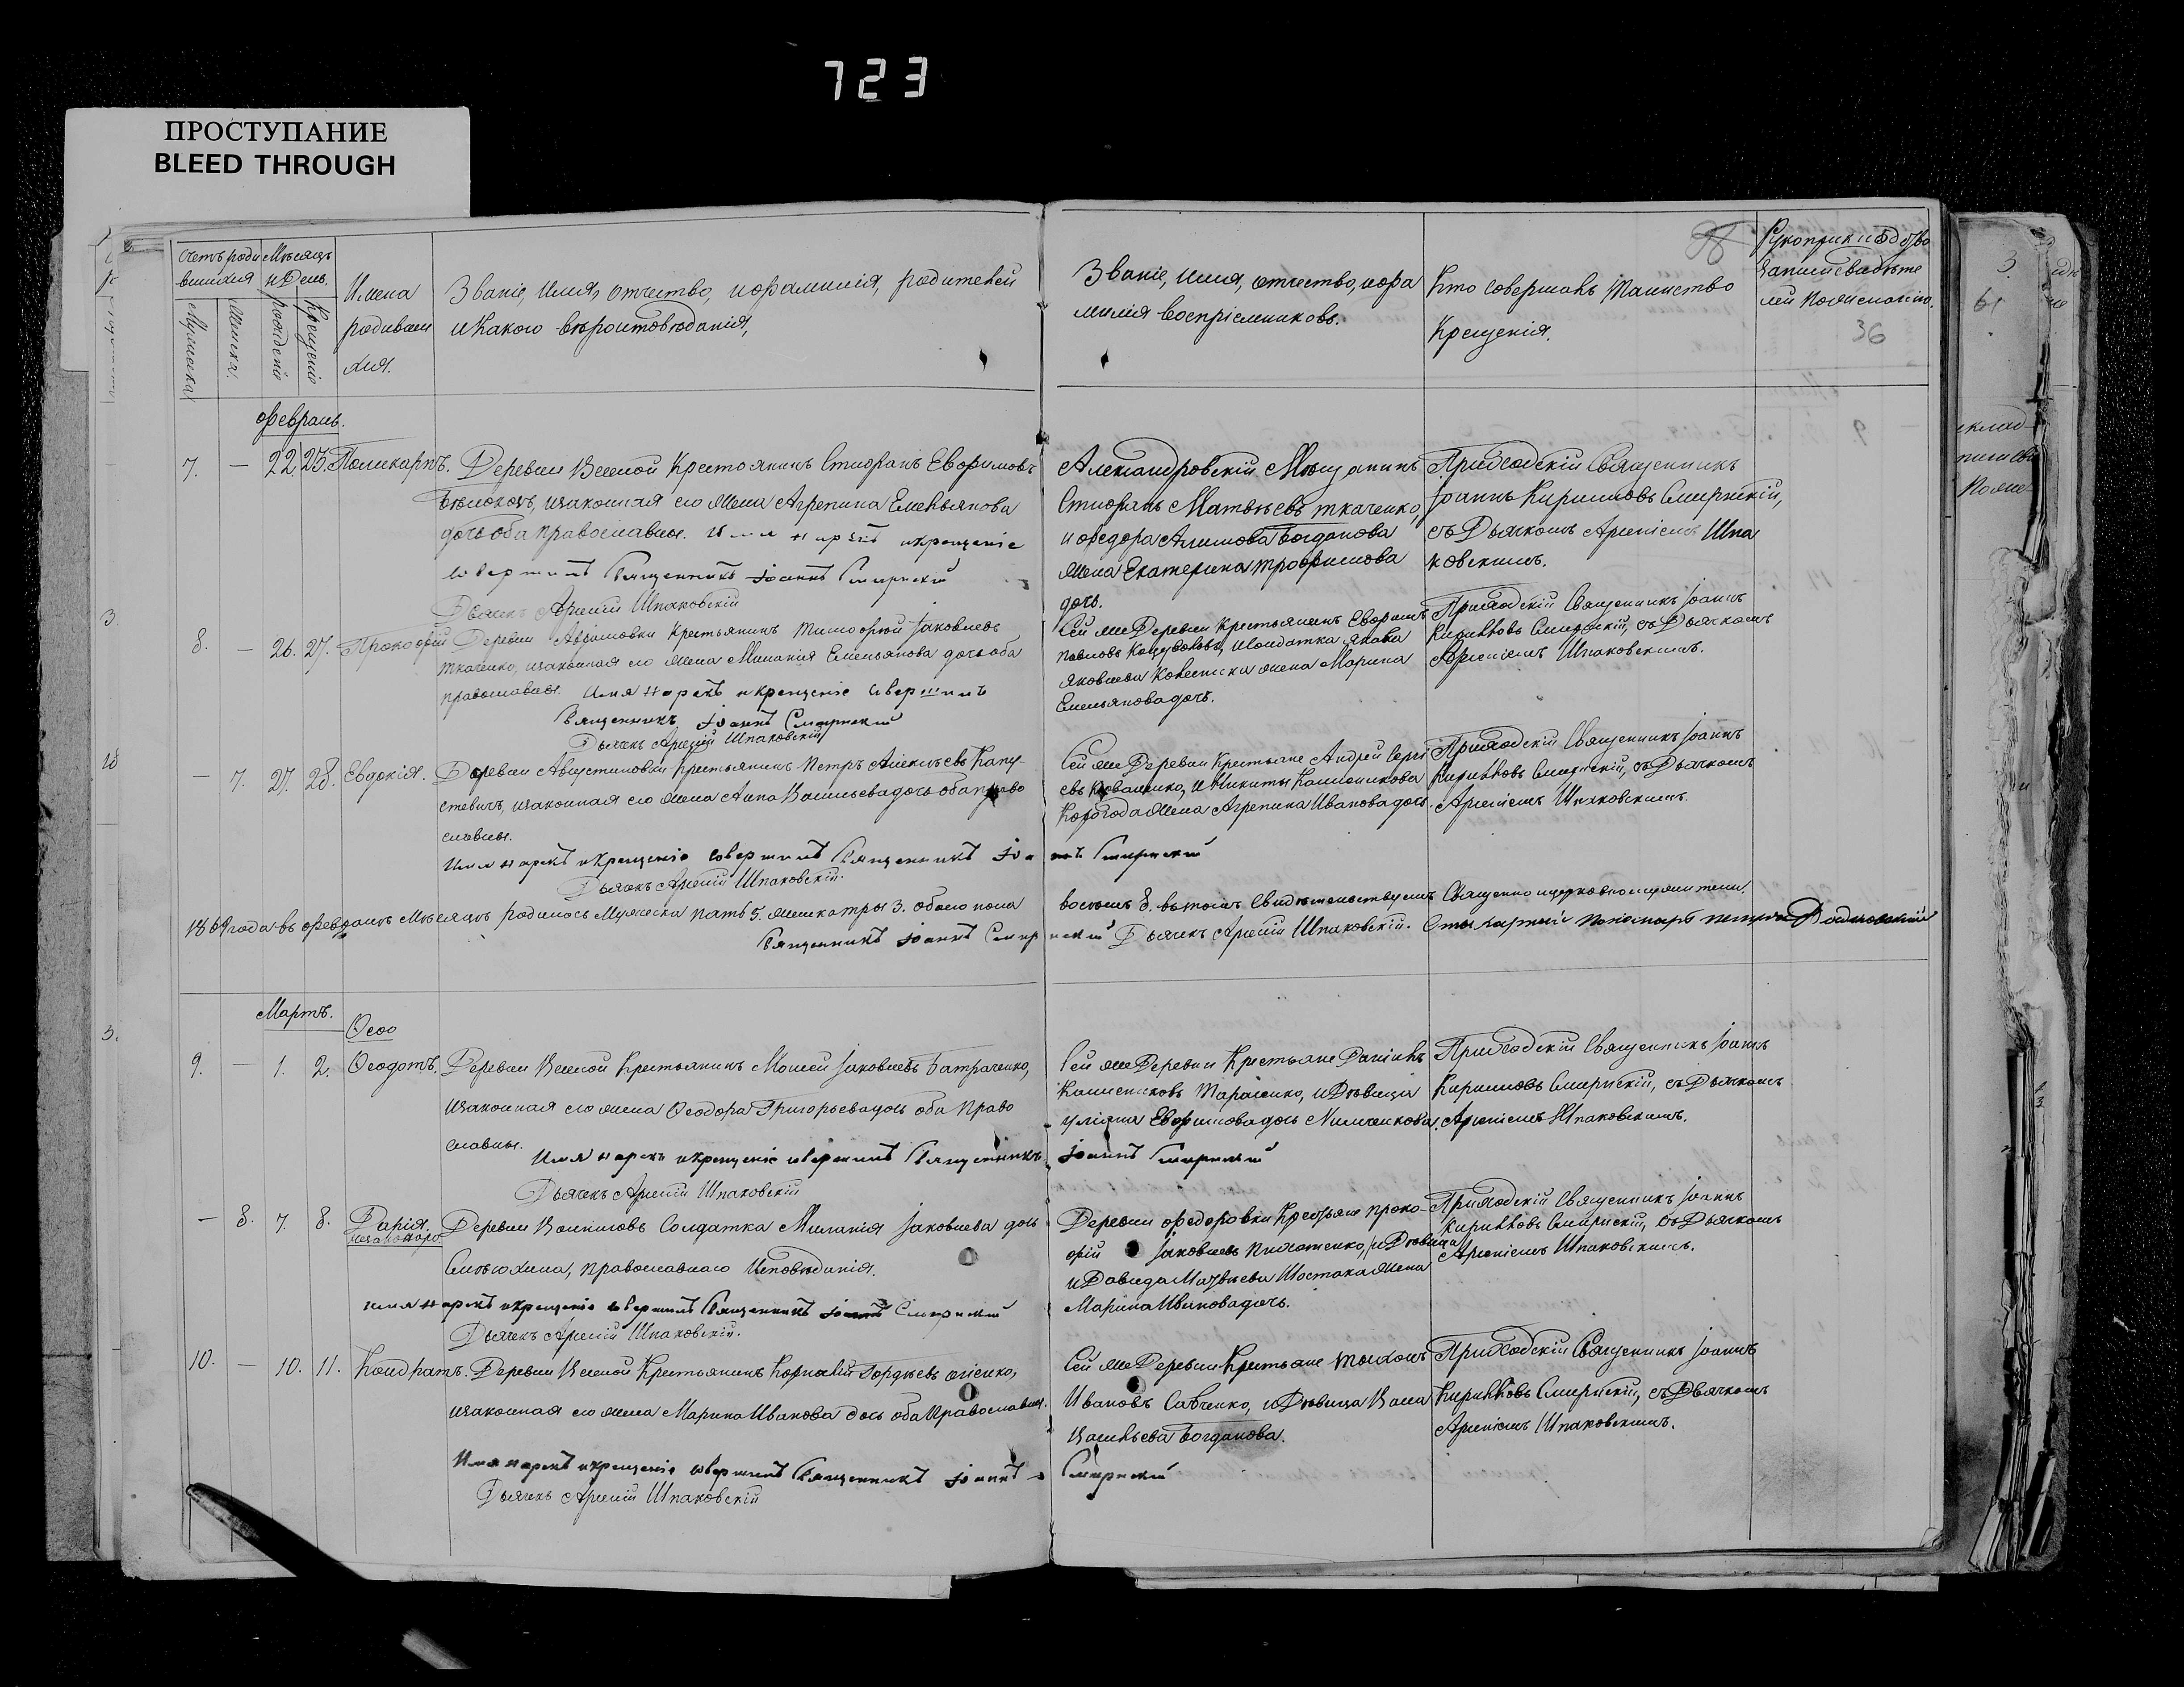 723
ПРОСТУПАНИЕ
BLEED THROUGH
Счетъ роди
вшихся
Мѣсяцъ
и День.
Мужеска
Женска.
рожденія
Крещенія
Имена
родивши
хся.
Званіе, имя, отчество, и фамилія, родителей
и какого вѣроисповѣданія,
Званіе, имя, отчество, и фа
милія воспріемниковъ.
Кто совершалъ таинство
Крещенія.
Рукоприкладство
записи свидѣте
лей по желанію.
36
Февраль.
7. — 22. 23. Поликарпъ.
Деревни Веселой Крестьянинъ Стефанъ Евфимовъ
законная его жена Агрепина Емельянова
дочь оба православные. Имя нарекъ и крещеніе
совершилъ Священникъ Іоаннъ Смирнскій
Дьячекъ Арсеній Шпаковскій
Александровскій Мѣщанинъ
Стефанъ Матвѣевъ Ткаченко,
и Федора Богданова
жена Екатерина Трофимова
дочь.
Приходскій Священникъ
Іоаннъ Кирилловъ Смирнскій,
съ Дьячкомъ Арсеніемъ Шпа
ковскимъ.
8. — 26. 27. Прокофій
Деревни Крестьянинъ Тимофей Іаковлевъ
Ткаченко, законная его жена Миланія Емельянова дочь оба
православные. Имя нарекъ и крещеніе совершилъ
Священникъ Іоаннъ Смирнскій
Дьячекъ Арсеній Шпаковскій
Сей же Деревни Крестьянинъ Евфимъ
Павловъ и солдатка Якова
Яковлева жена Марина
Емельянова дочь.
Приходскій Священникъ Іоаннъ
Кирилловъ Смирнскій, съ Дьячкомъ
Арсеніемъ Шпаковскимъ.
— 7. 27. 28. Евдокія.
Деревни Августиновки Крестьянинъ Петръ Алексѣевъ Капу-
стевичъ, законная его жена Анна Васильева дочь оба право
славные.
Имя нарекъ и крещеніе совершилъ Священникъ Іоаннъ Смирнскій
Дьячекъ Арсеній Шпаковскій.
Сей же Деревни Крестьяне Андрей Серге
евъ Коваленко, и Никиты
жена Агрепина Иванова дочь.
Приходскій Священникъ Іоаннъ
Кирилловъ Смирнскій, съ Дьячкомъ
Арсеніемъ Шпаковскимъ.
1869 года въ февралѣ мѣсяцѣ родилось мужеска пять 5. женска три 3. обоего пола восемь 8. въ томъ свидѣтельствуемъ Священно церковно служители.
Священникъ Іоаннъ Смирнскій Дьячекъ Арсеній Шпаковскій. Пономарь
Мартъ.
Ѳео
9. — 1. 2. Ѳеодотъ.
Деревни Веселой Крестьянинъ Моисей Іаковлевъ Батраченко,
законная его жена Ѳеодора Григорьева дочь оба Право
славные.
Имя нарекъ и крещеніе совершилъ Священникъ Іоаннъ Смирнскій
Дьячекъ Арсеній Шпаковскій
Сей же Деревни Крестьяне Даніилъ
Тарасенко, и Дѣвица
Евфимова дочь
Приходскій Священникъ Іоаннъ
Кирилловъ Смирнскій, съ Дьячкомъ
Арсеніемъ Шпаковскимъ.
— 8. 7. 8. Дарія.
незаконоро
Деревни Солдатка Миланія Іаковлева дочь
православнаго исповѣданія.
имя нарекъ и крещеніе совершилъ Священникъ Іоаннъ Смирнскій
Дьячекъ Арсеній Шпаковскій.
Деревни Федоровки Крестьяне Проко-
фій Іаковлевъ и Дѣвица
и Давида Матвѣева Шостака жена
Марина Иванова дочь.
Приходскій Священникъ Іоаннъ
Кирилловъ Смирнскій, съ Дьячкомъ
Арсеніемъ Шпаковскимъ.
10. — 10. 11. Кондратъ.
Деревни Веселой Крестьянинъ Корнилій Гордѣевъ
законная его жена Марина Иванова дочь оба Православные.
Имя нарекъ и крещеніе совершилъ Священникъ Іоаннъ Смирнскій
Дьячекъ Арсеній Шпаковскій
Сей же Деревни Крестьяне Тихонъ
Ивановъ Савченко, и Дѣвица
Васильева Богданова.
Приходскій Священникъ Іоаннъ
Кирилловъ Смирнскій, съ Дьячкомъ
Арсеніемъ Шпаковскимъ.